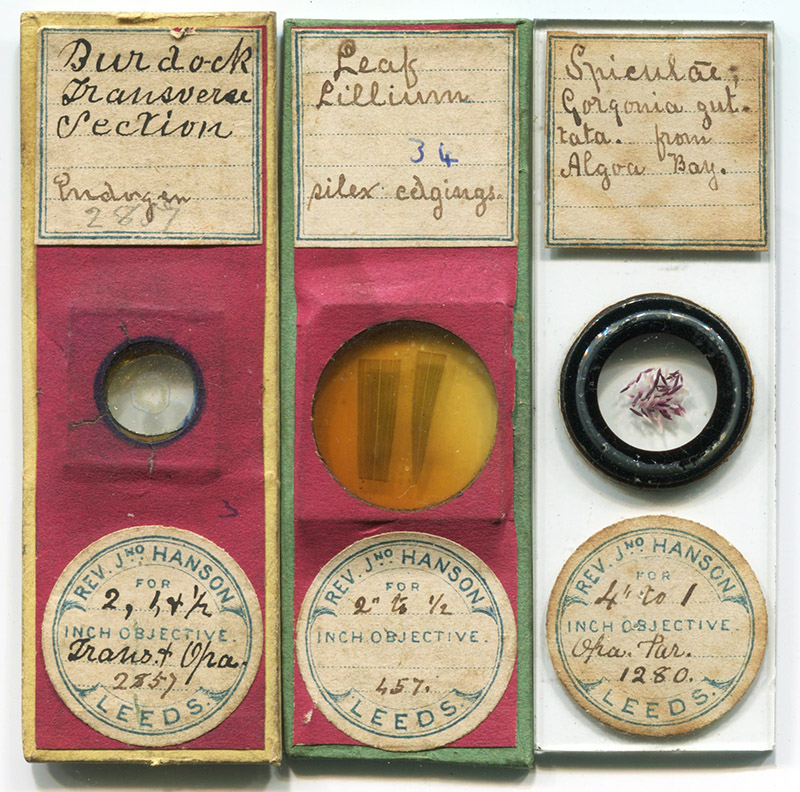 Burdock
Transverse
Section
Endogen
2857
3
REV. JNO HANSON
FOR
2, 1, & 1/2
INCH OBJECTIVE.
Trans. & Opa.
2857
LEEDS.
Leaf
Lillium
34
silex edgings.
REV. JNO HANSON
FOR
2" to 1/2
INCH OBJECTIVE.
457.
LEEDS.
Spiculae;
Gorgonia gut-
tata. from
Algoa Bay.
REV. JNO HANSON
FOR
4" to 1
INCH OBJECTIVE.
Opa. Par.
1280.
LEEDS.